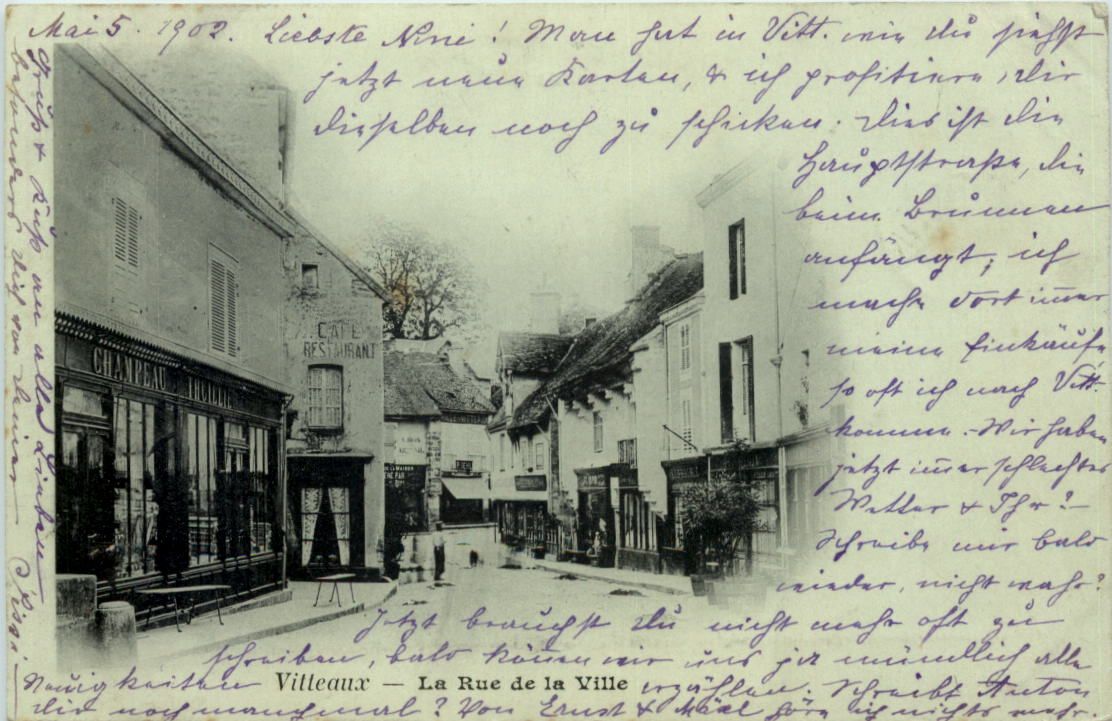 Mai 5. 1902. Liebste Nini! Man hat in Vitt. wie du siehst
jetzt neue Karten, & ich profitiere, dir
dieselben noch zu schicken. Dies ist die
Hauptstrasse, die
beim Brunnen
anfängt; ich
mache dort imer
meine Einkäufe
so oft ich nach Vitt.
komme. Wir haben
jetzt imer schlechtes
Wetter & Ihr? –
Schreibe mir bald
wieder, nicht wahr?
Jetzt brauchst du nicht mehr oft zu
schreiben, bald könen wir uns ja mündlich alle
Neuigkeiten erzählen. Schreibt Anton
dir noch manchmal? Von Ernst & höre ich nichts mehr.
Gruß & Kuß an alle Lieben
besonders dich von deiner
Vitteaux — La Rue de la Ville
CHAMPEAU
CAFÉ
RESTAURANT